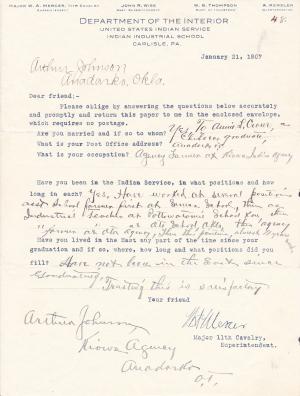 MAJOR W. A. MERCER, 11TH CAVALRY
SUPERINTENDENT
JOHN R. WISE
ASST. SUPERINTENDENT
W. B. THOMPSON
SUPT. OF INDUSTRIES
48.
DEPARTMENT OF THE INTERIOR
UNITED STATES INDIAN SERVICE
INDIAN INDUSTRIAL SCHOOL
CARLISLE, PA.
January 21, 1907
Arthur Johnson
Anadarko, Okla.
Dear friend:-
Please oblige by answering the questions below accurately
and promptly and return this paper to me in the enclosed envelope,
which requires no postage.
Are you married and if so to whom? Yes, To
graduate,
What is your Post Office address? Anadarko
What is your occupation? Agency Farmer at Kiowa Indian Agency
Have you been in the Indian Service, in what positions and how
long in each? Yes, Have worked at several positions
School farmer first at School, then as
Industrial Teacher at Pottawatomie School, then
farmer at
Have you lived in the East any part of the time since your
graduation and if so, where, how long and what positions did you
fill? Have not been in the East since
Graduating.
Trusting this is satisfactory
Your friend
Arthur Johnson
Kiowa Agency
Anadarko
O.T.
Major 11th Cavalry,
Superintendent.